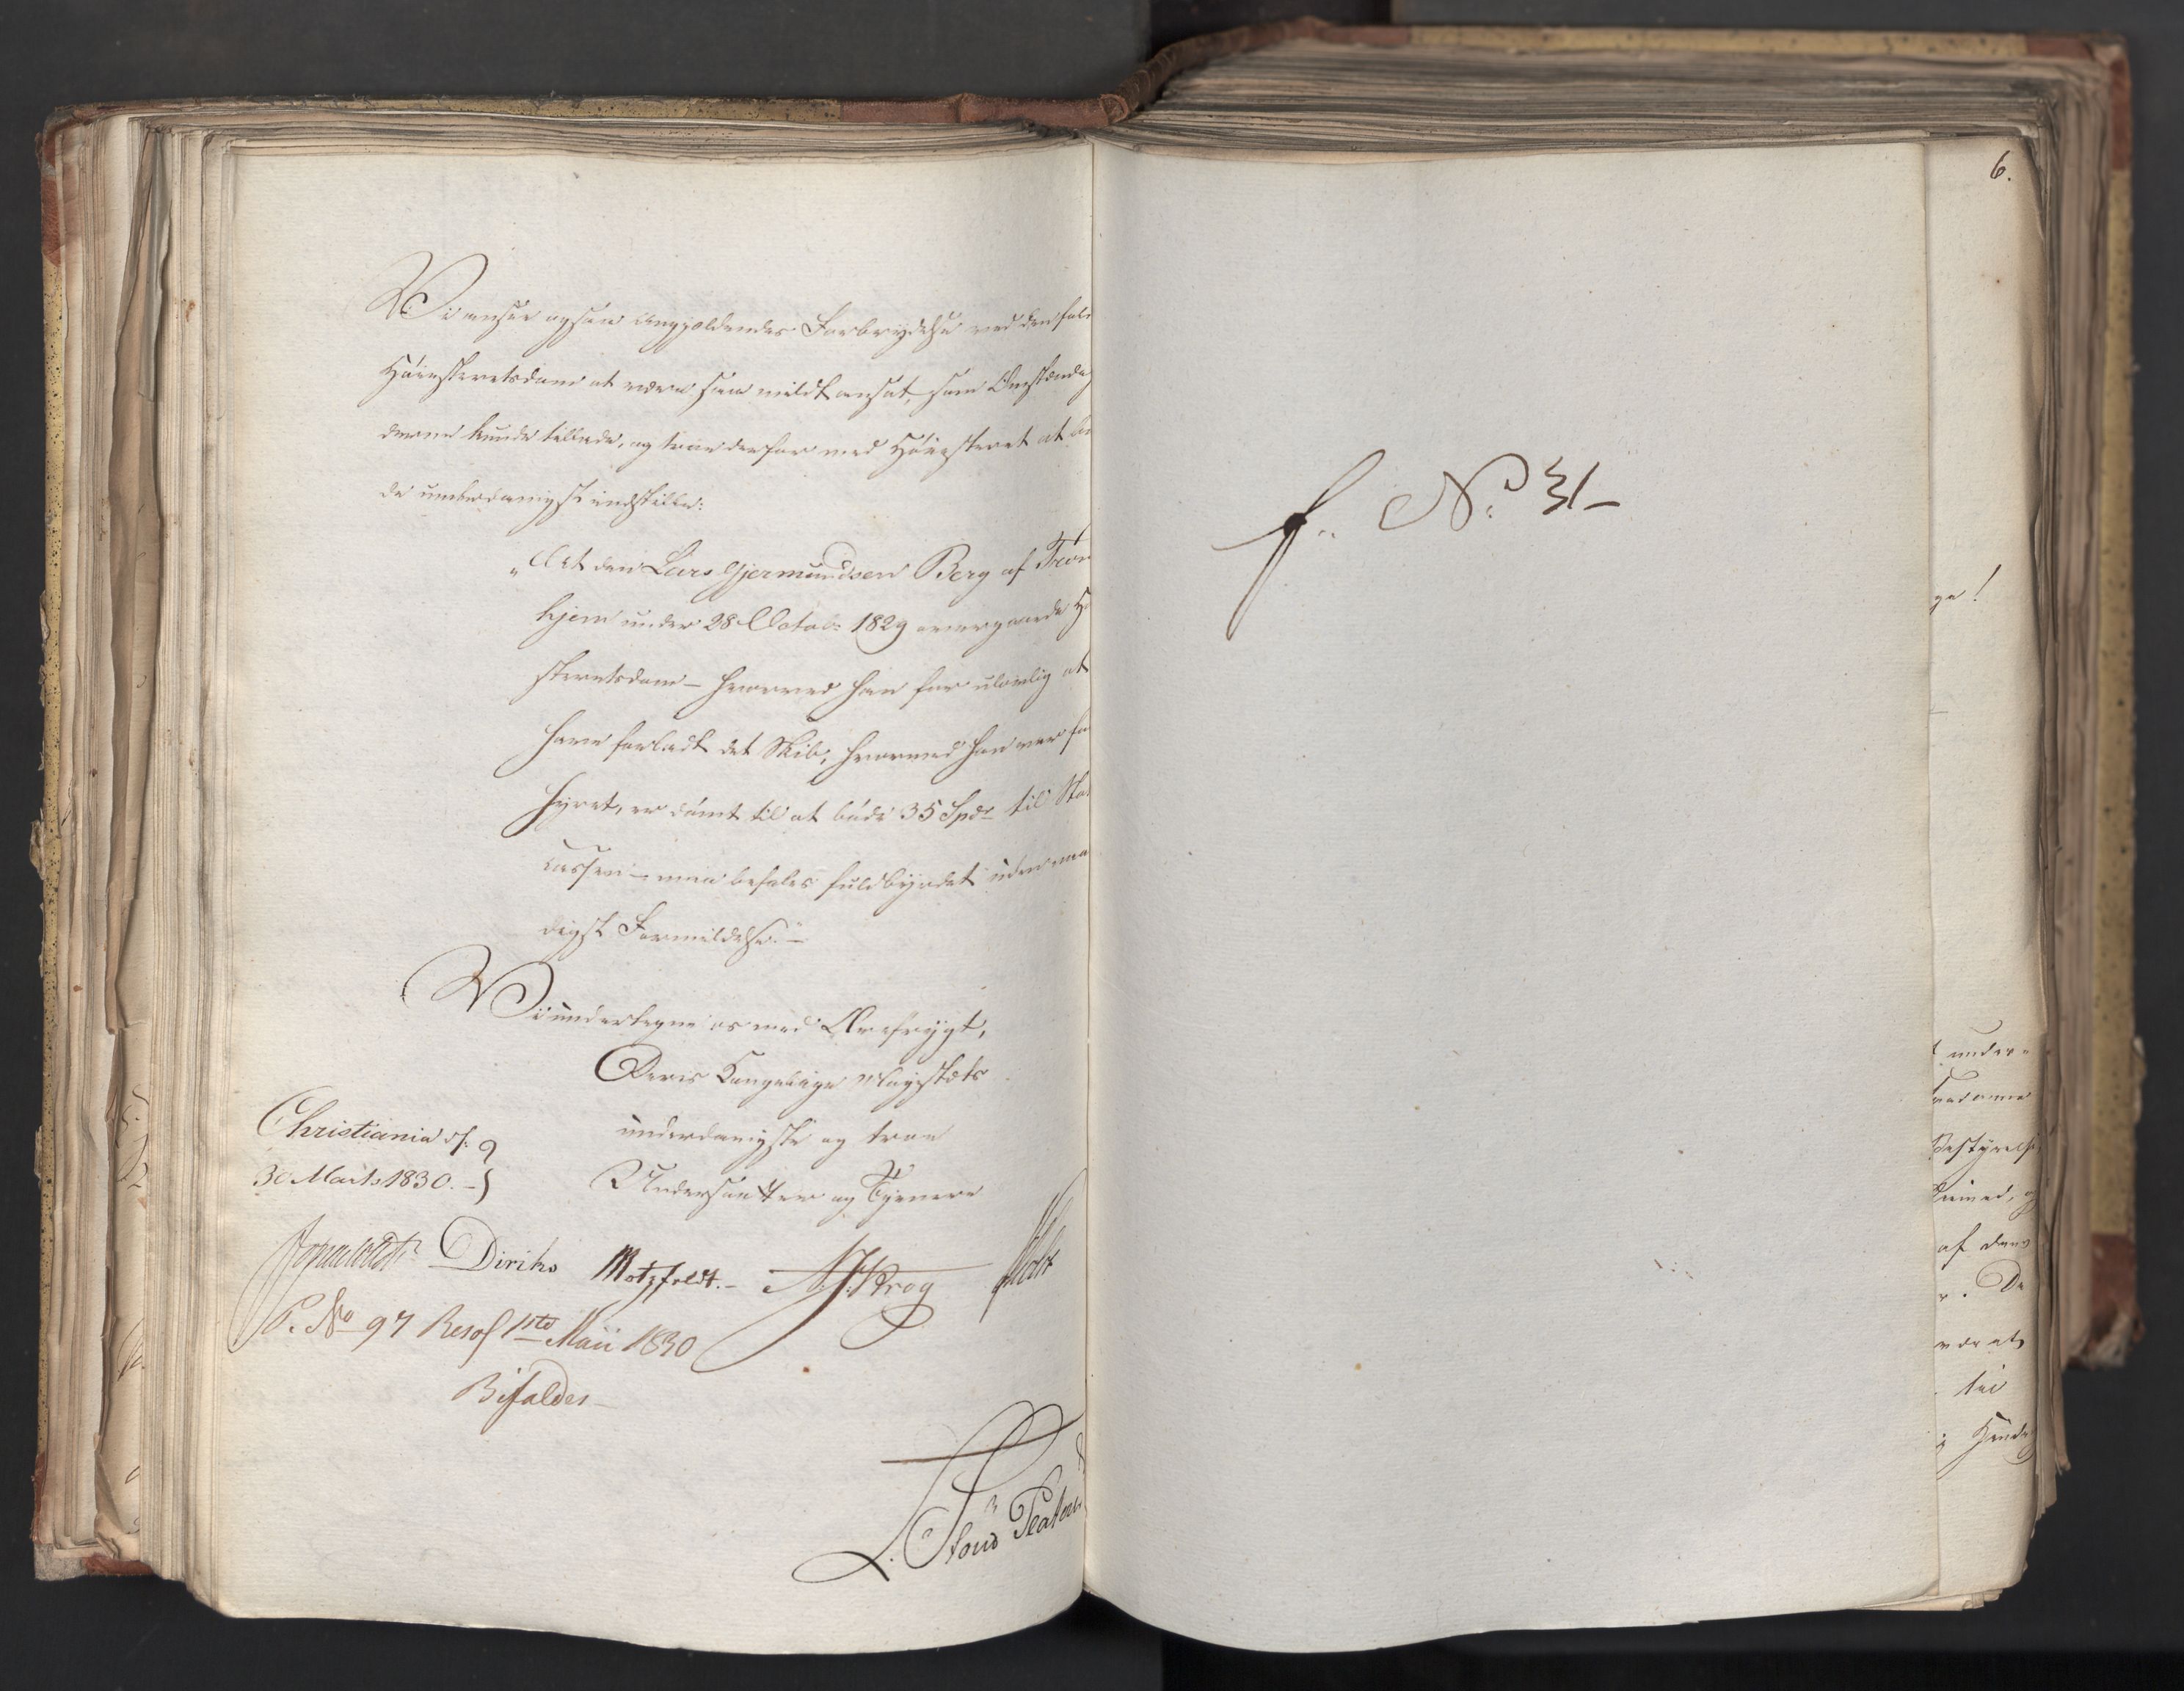 Vi ansee ogsaa Angjeldendes Forbrydelse ved den fal
Høiesteretsdom at være saa mildt anseet, som Omstændig
derne kunde tillade, og troe derfor med Høiesteret at bu
de underdanigst indstille:
"At den Lars Gjermundsen Berg af Tron
hjem under 28 Octobr: 1829 overgaaede Hø
steretsdom – hvorved han for ulovlig at
have forladt det Skib, hvormed han var for
hyret, er dømt til at bøde 35 Spdr til Stats
cassen – maa befales fuldbyrdet uden naa
digst Formildelse." –
Vi undertegne os med Ærefrygt,
Deres Kongelige Majestæts
underdanigste og troe
Undersaatter og Tjenere
Christiania d.
30 Marts 1830. –
Diriks Motzfeldt. – N.J. Krog Holst
P. No 97 Resol 1ste Maii 1830
Bifaldes –
f. No: 31 –
6.
ge!
under-
Bestyrelse
af den
. De
været